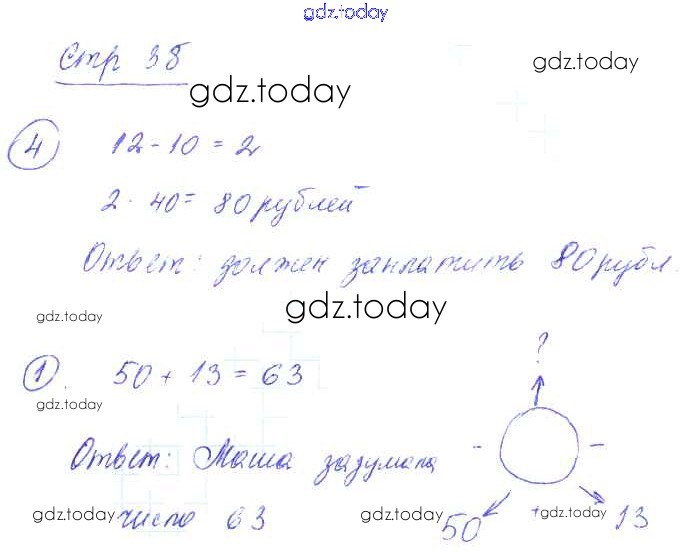 gdz.today
Стр 35
gdz.today
gdz.today
4 12 - 10 = 2
2 · 40 = 80 рублей
Ответ: должен заплатить 80 рубл.
gdz.today
gdz.today
?
1. 50 + 13 = 63
gdz.today
Ответ: Маша задумала - -
gdz.today число 63 gdz.today 50 + gdz.today 13